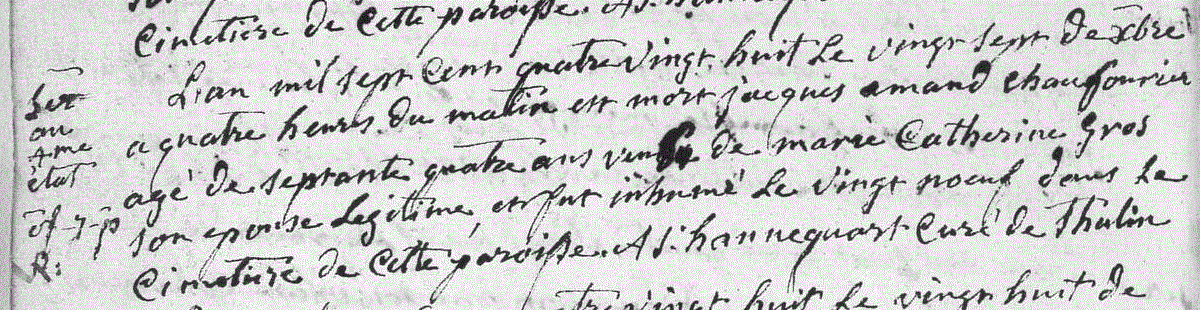 Cimetiere de Cette paroisse. A
L'an mil sept Cent quatre vingt huit Le vingt sept de xbre
a quatre heures du matin est mort jacques amand chaufourier
agé de septante quatre ans veuf de marie Catherine Gros
son epouse Legitime, et fut inhumé Le vingt noeuf dans Le
Cimetiere de Cette paroisse. A S: hannequart Curé de Thulin
vingt huit Le vingt huit de
au
4me
état
R: